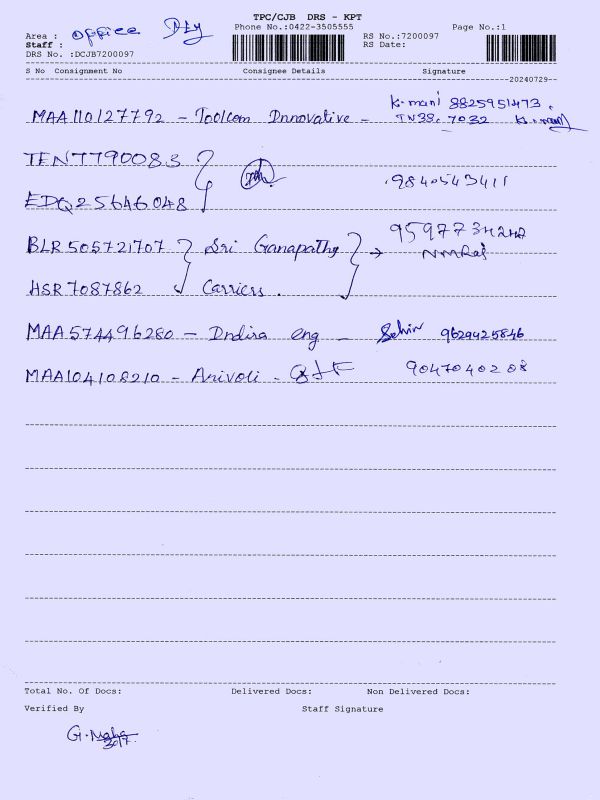 TPC/CJB DRS - KPT
Phone No.:0422-3505555 Page No.:1
Area : Office Dly
RS No.:7200097
Staff :
RS Date:
DRS No. :DCJB7200097
S No Consignment No Consignee Details Signature
20240729
K. mani 8825951473.
MAA110127792 - Toolcom Innovative - TN38. 7032 K. mani
TEN7790083
9840543411
EDQ25646048
BLR505721707 Sri Ganapathy → 9597734242
HSR7087862 Carriers.
MAA574496280 - Indira eng - 9629425846
MAA104108210 - Arivoli - 9047040208
Total No. Of Docs: Delivered Docs: Non Delivered Docs:
Verified By Staff Signature
G. Maha
30/7